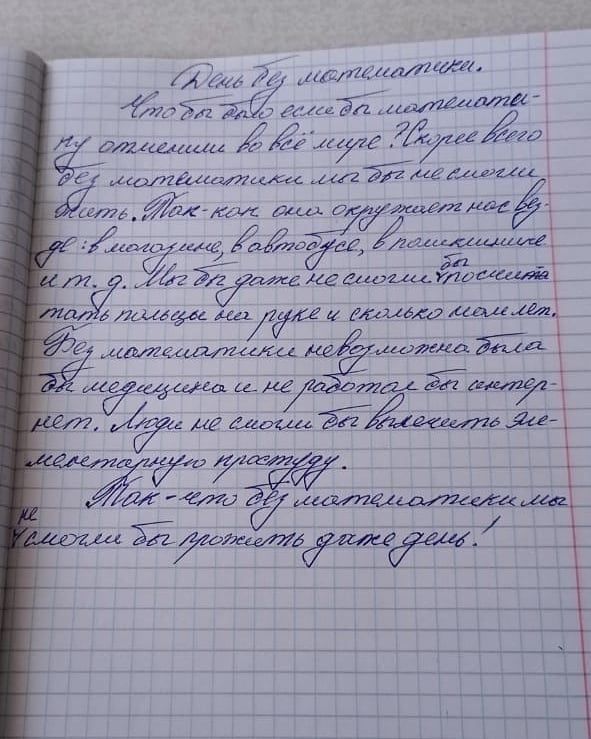 День без математики.
Что бы было если бы математи-
ку отменили во всё мире? Скорее всего
без математики мы бы не смогли
жить. Так-как она окружает нас вез-
де: в магазине, в автобусе, в поликлинике
и т. д. Мы бы даже не смогли бы посчита
тать пальцы на руке и сколько нам лет.
Без математики невозможна была
бы медицина и не работал бы интер-
нет. Люди не смогли бы вылечить эле-
ментарную простуду.
Так-что без математики мы
не
смогли бы прожить даже день!